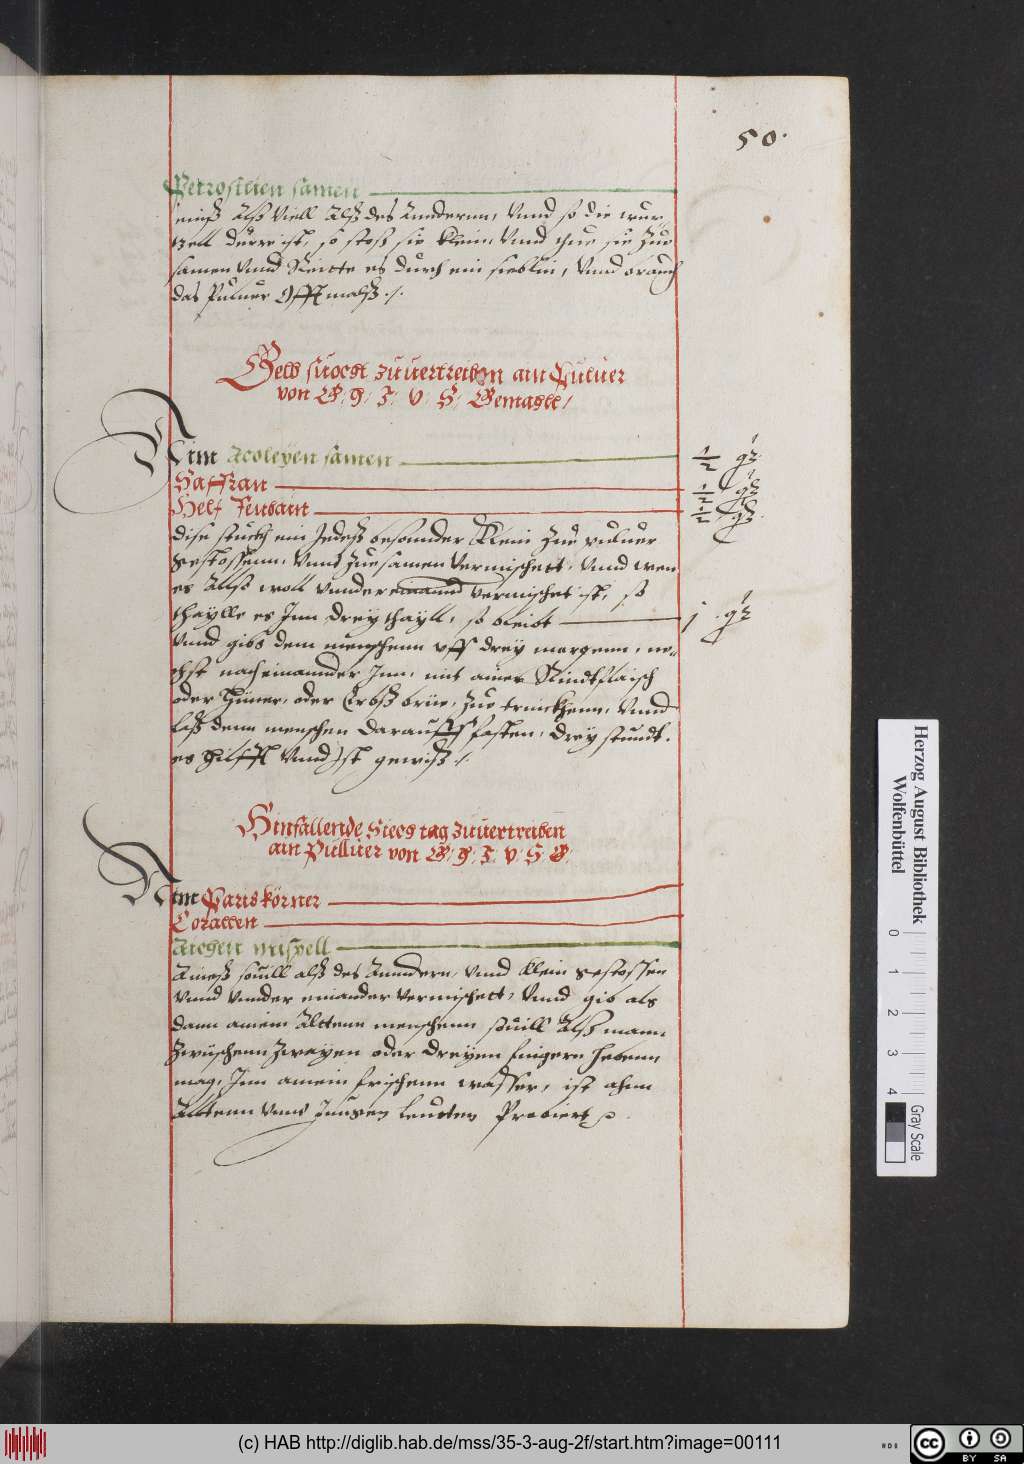 50.
Petrosilien samen
einß Alß Viell Alß des Anndernn, Vnnd so die wur
tzell dürr ist, so stoß sie klein, Vnnd thue sie zue
samen Vnnd Reitte es durch ein sieblin, Vnnd brauch
das Puluer Offtmalß ./.
Gelb sucht zuuertreiben ain Puluer
von G: H: Z: V: S: Gemacht /
Nim Acoleyen samen 1/2
Saffran 1/2
Helffenbain 1/2
dise stuckh ein Jedeß besonnder klein zue puluer
gestossenn, Vnnd zuesamen Vermischett, Vnnd wen
es Alles woll vnnder einannd Vermischet ist, so
thaylle es Jnn drey thayll, so bleibt j
Vnnd gibs dem menschenn vff drey morgenn, ne=
chst nacheinannder Jnn, mit ainer Rindtflaisch
oder Hüner, oder Erbß brüe, zue trinckhenn, Vnnd
laß denn menschen darauff fasten, drey stundt.
es hilfft Vnnd Jst gewiß ./.
Hinfallende Siechtag zuuertreiben
ain Pulluer von G: H: Z: V: S: G:
Nim Pariskörner
Corallen
Aichen mispell
Aineß souill alß des Anndern, Vnnd klein gestossen
Vnnd vnnder einander Vermischett, Vnnd gib als
dann ainem Alttenn menschenn souill Alß mann
Zwischenn Zwayen oder dreyen fingern hebenn
mag, Jnn ainem frischenn wasser, ist ahnn
Alttenn vnnd Jungen leutten Probiert
Herzog August Bibliothek
Wolfenbüttel
0 1 2 3 4
Gray Scale
(c) HAB http://diglib.hab.de/mss/35-3-aug-2f/start.htm?image=00111
cc BY SA